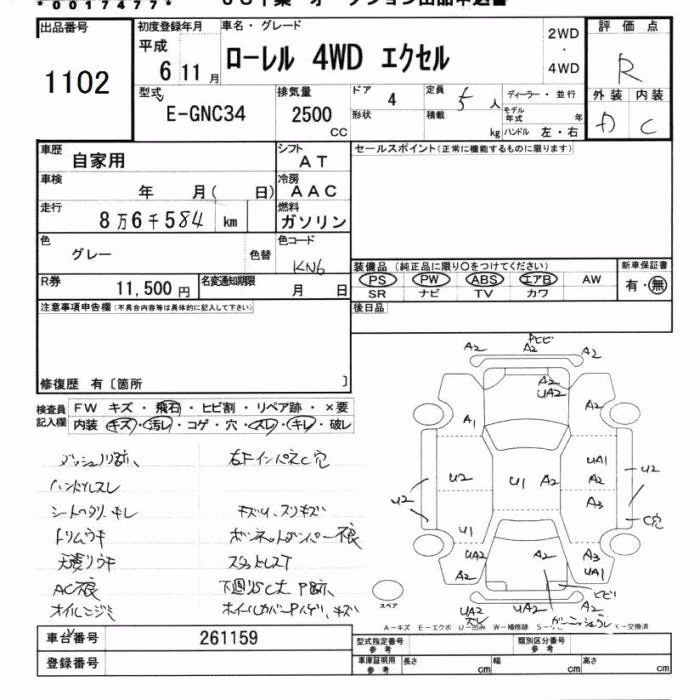 *0017477*
出品番号
1102
初度登録年月
平成
6 11 月
車名・グレード
ローレル 4WD エクセル
2WD
・
4WD
評価点
R
外装 内装
D C
型式
E-GNC34
排気量
2500
CC
ドア 4
形状
定員 5 人
積載 kg
ディーラー・並行
モデル年式 年
ハンドル 左・右
車歴
自家用
シフト
AT
車検
年 月( 日)
冷房
AAC
走行
8万6千584 km
燃料
ガソリン
色
グレー
色替
色コード
KN6
R券
11,500 円
名変通知期限
月 日
セールスポイント(正常に機能するものに限ります)
装備品(純正品に限り○をつけてください)
PS PW ABS エアB AW
SR ナビ TV カワ
新車保証書
有・無
後日品
注意事項申告欄(不具合内容等は具体的に記入して下さい)
修復歴 有〔箇所 〕
検査員記入欄
FW キズ・飛石・ヒビ割・リペア跡・×要
内装 キズ・汚レ・コゲ・穴・スレ・キレ・破レ
ハンドルスレ
シートヘタリ キレ
トリムウキ
天張リウキ
AC不良
オイルニジミ
右Fインパネ C穴
キズU、スリキズ
ボンネットダンパー不良
スタッドレスT
下廻リSC大 P跡
ホイールカバーPハゲ、キズ
A2 A2 ヒビ A2
A2
UA2
A1 A2
U2 U2 U1 A2 UA1 A2 A3 U2
C穴
U1 UA2 A2 A2 A3 UA1
ヒビ
UA2 UA2 A2
スペア
A-キズ E-エクボ U-凹み W-補修跡 S-サビ X-交換済
車台番号
261159
登録番号
型式指定番号
参考
類別区分番号
参考
車庫証明用
参考
長さ cm
幅 cm
高さ cm